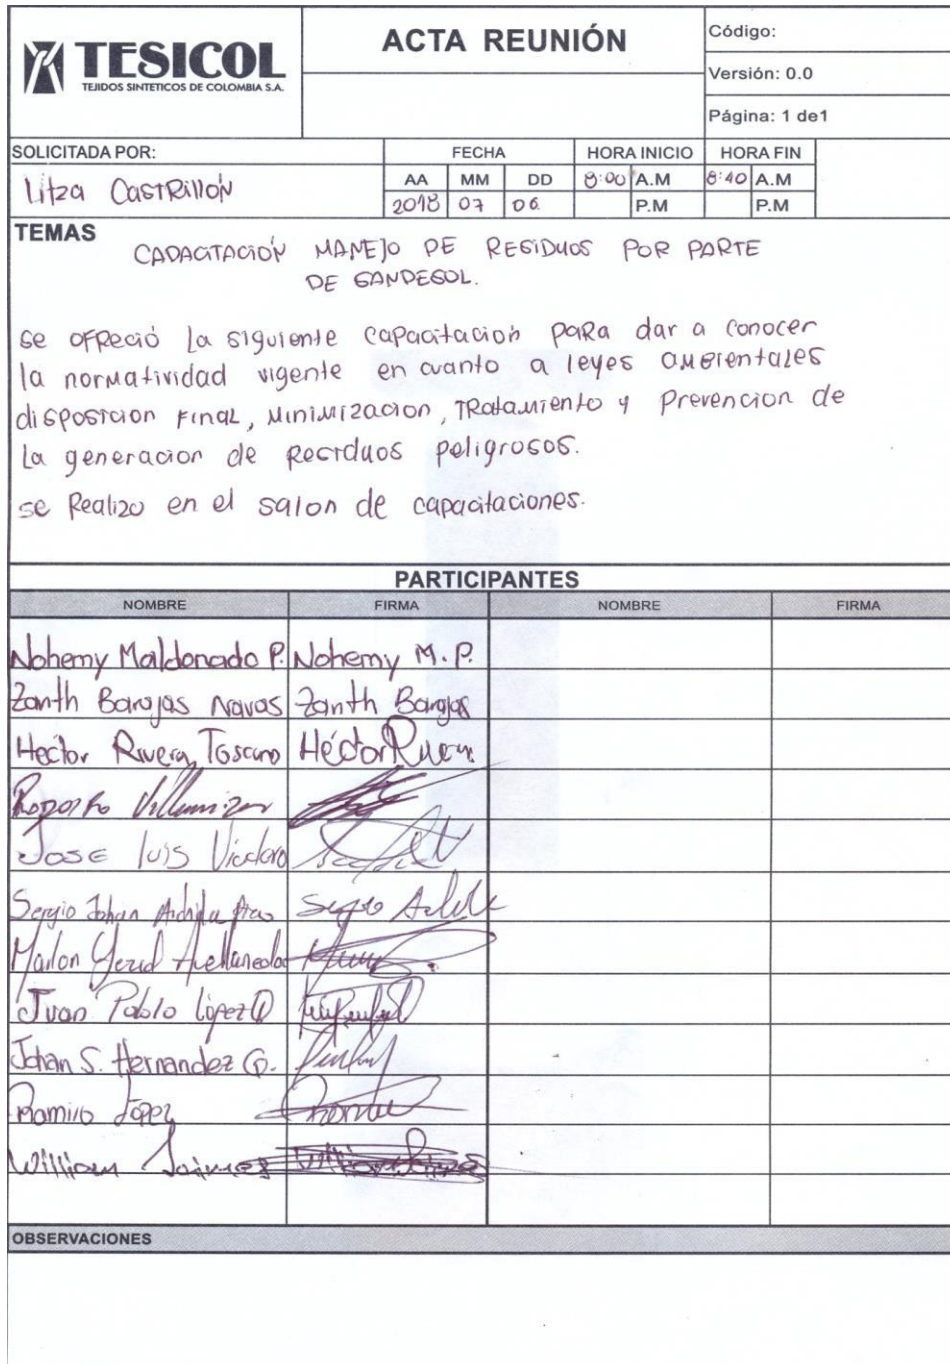 TESICOL
TEJIDOS SINTETICOS DE COLOMBIA S.A.
ACTA REUNIÓN
Código:
Versión: 0.0
Página: 1 de1
SOLICITADA POR:
Litza Castrillón
FECHA
HORA INICIO
HORA FIN
AA MM DD
8:00 A.M
8:40 A.M
2018 07 06
P.M
P.M
TEMAS
CAPACITACIÓN MANEJO DE RESIDUOS POR PARTE
DE SANDESOL.
se ofreció la siguiente capacitación para dar a conocer
la normatividad vigente en cuanto a leyes ambientales
disposicion Final, Minimizacion, Tratamiento y Prevencion de
la generacion de Residuos peligrosos.
se Realizo en el salon de capacitaciones.
PARTICIPANTES
NOMBRE FIRMA NOMBRE FIRMA
Nohemy Maldonado P. Nohemy M. P.
Zanth Barajas Navas Zanth Barajas
Hector Rivera Toscano Héctor
Villamizar
Jose luis
Sergio Johan Sergio
Yezid Avellaneda
Juan Pablo López
Johan S. Hernandez G.
Ramiro López
William Jaimes
OBSERVACIONES